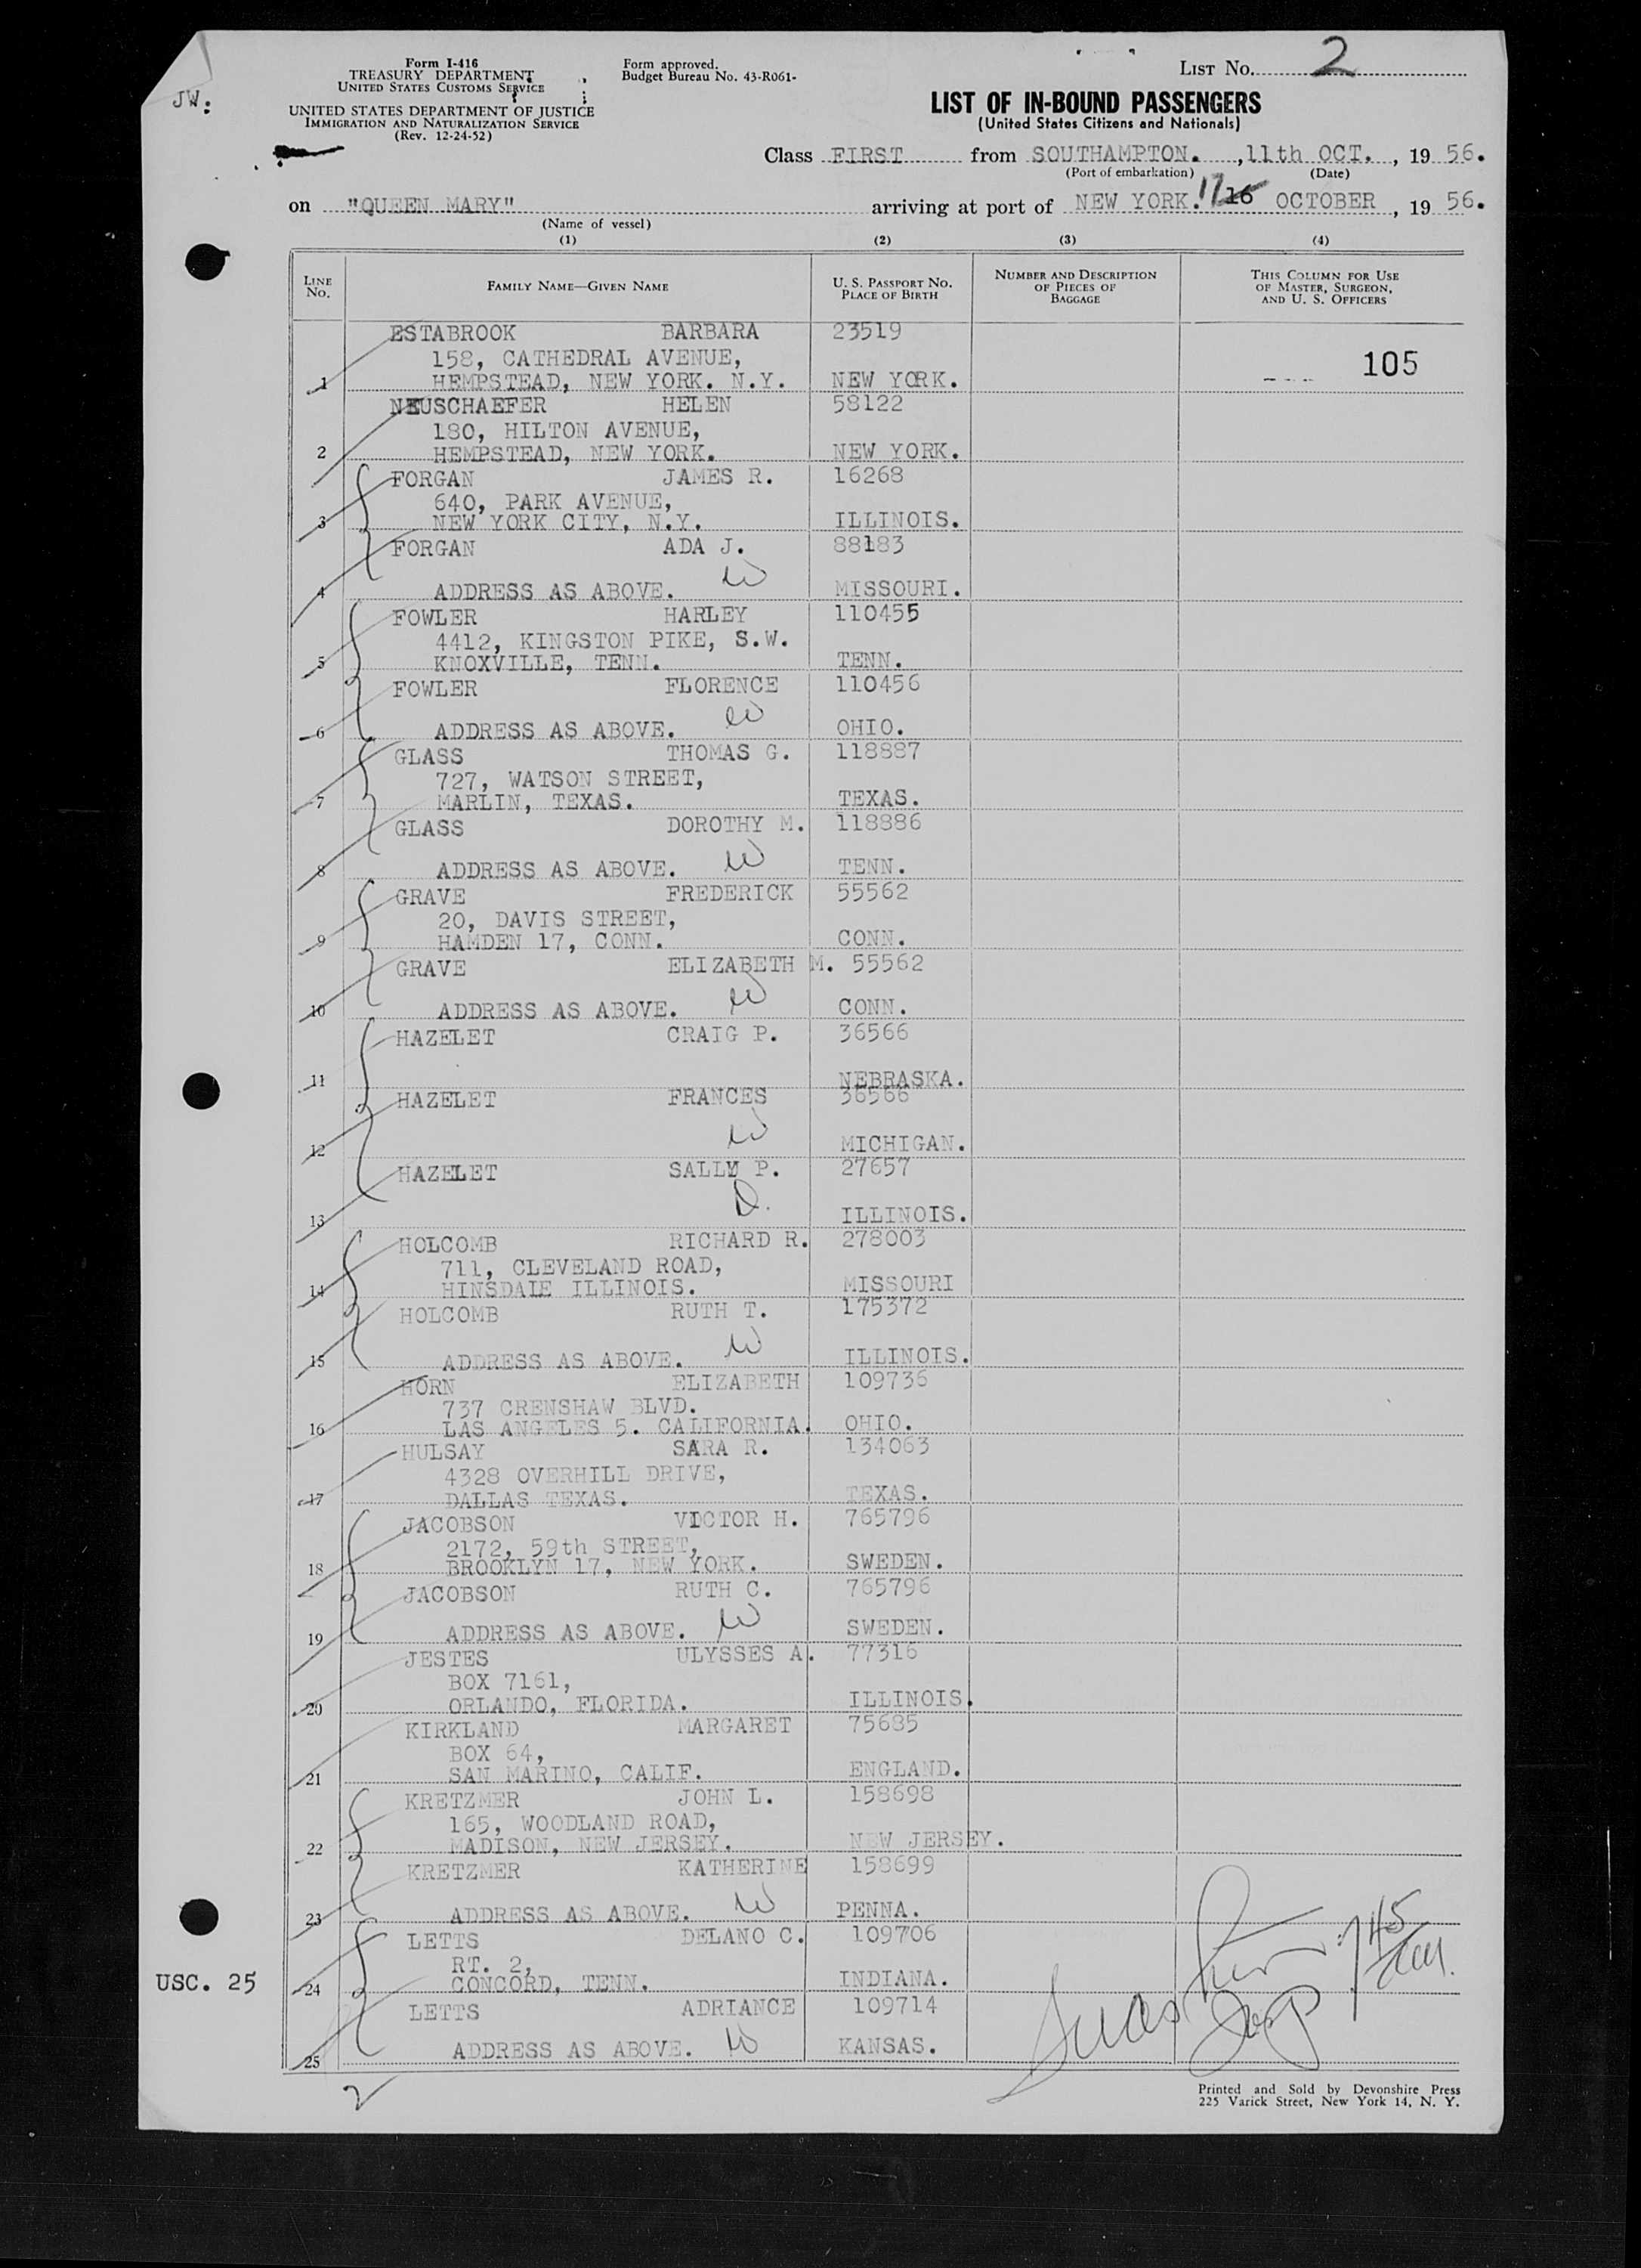 JW:
Form I-416
TREASURY DEPARTMENT
UNITED STATES CUSTOMS SERVICE
UNITED STATES DEPARTMENT OF JUSTICE
IMMIGRATION AND NATURALIZATION SERVICE
(Rev. 12-24-52)
Form approved.
Budget Bureau No. 43-R061-
LIST NO. 2
LIST OF IN-BOUND PASSENGERS
(United States Citizens and Nationals)
Class FIRST from SOUTHAMPTON. , 11th OCT. , 19 56.
(Port of embarkation) (Date)
on "QUEEN MARY" arriving at port of NEW YORK. 17 16 OCTOBER , 19 56.
(Name of vessel)
(1) (2) (3) (4)
LINE NO. FAMILY NAME—GIVEN NAME U. S. PASSPORT NO. PLACE OF BIRTH NUMBER AND DESCRIPTION OF PIECES OF BAGGAGE THIS COLUMN FOR USE OF MASTER, SURGEON, AND U. S. OFFICERS
ESTABROOK BARBARA 23519
158, CATHEDRAL AVENUE, 105
1 HEMPSTEAD, NEW YORK. N.Y. NEW YORK.
NEUSCHAEFER HELEN 58122
180, HILTON AVENUE,
2 HEMPSTEAD, NEW YORK. NEW YORK.
FORGAN JAMES R. 16268
640, PARK AVENUE,
3 NEW YORK CITY, N.Y. ILLINOIS.
FORGAN ADA J. 88183
W
4 ADDRESS AS ABOVE. MISSOURI.
FOWLER HARLEY 110455
4412, KINGSTON PIKE, S.W.
5 KNOXVILLE, TENN. TENN.
FOWLER FLORENCE 110456
W
6 ADDRESS AS ABOVE. OHIO.
GLASS THOMAS G. 118887
727, WATSON STREET,
7 MARLIN, TEXAS. TEXAS.
GLASS DOROTHY M. 118886
W
8 ADDRESS AS ABOVE. TENN.
GRAVE FREDERICK 55562
20, DAVIS STREET,
9 HAMDEN 17, CONN. CONN.
GRAVE ELIZABETH M. 55562
W
10 ADDRESS AS ABOVE. CONN.
HAZELET CRAIG P. 36566
11 NEBRASKA.
HAZELET FRANCES 36566
W
12 MICHIGAN.
HAZELET SALLY P. 27657
D.
13 ILLINOIS.
HOLCOMB RICHARD R. 278003
711, CLEVELAND ROAD,
14 HINSDALE ILLINOIS. MISSOURI
HOLCOMB RUTH T. 175372
W
15 ADDRESS AS ABOVE. ILLINOIS.
HORN ELIZABETH 109736
737 CRENSHAW BLVD.
16 LAS ANGELES 5. CALIFORNIA. OHIO.
HULSAY SARA R. 134063
4328 OVERHILL DRIVE,
17 DALLAS TEXAS. TEXAS.
JACOBSON VICTOR H. 765796
2172, 59th STREET,
18 BROOKLYN 17, NEW YORK. SWEDEN.
JACOBSON RUTH C. 765796
W
19 ADDRESS AS ABOVE. SWEDEN.
JESTES ULYSSES A. 77316
BOX 7161,
20 ORLANDO, FLORIDA. ILLINOIS.
KIRKLAND MARGARET 75685
BOX 64,
21 SAN MARINO, CALIF. ENGLAND.
KRETZMER JOHN L. 158698
165, WOODLAND ROAD,
22 MADISON, NEW JERSEY. NEW JERSEY.
KRETZMER KATHERINE 158699
W
23 ADDRESS AS ABOVE. PENNA.
LETTS DELANO C. 109706
RT. 2,
USC. 25 24 CONCORD, TENN. INDIANA.
LETTS ADRIANCE 109714
25 ADDRESS AS ABOVE. W KANSAS.
2
Printed and Sold by Devonshire Press
225 Varick Street, New York 14, N. Y.